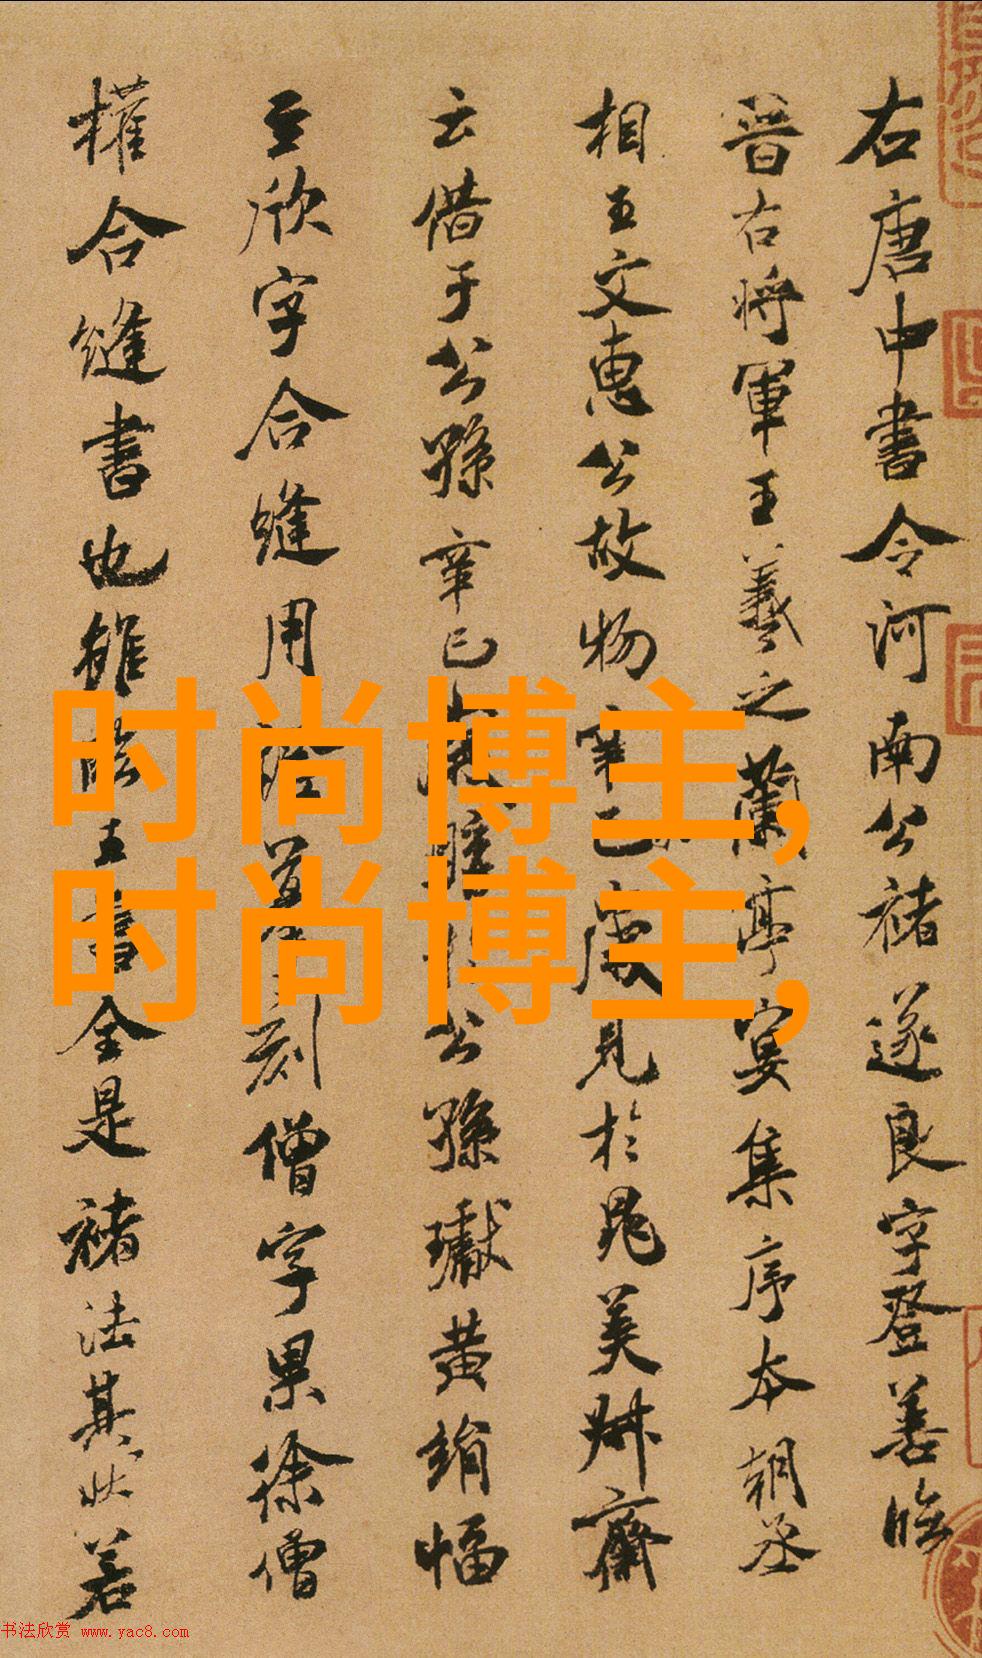 右唐中書令河南公褚遂良字登善臨
晉右將軍王羲之蘭亭宴集序本朝丞
相王文惠公故物辛巳歲見於晁美叔齋
云借于公孫辛巳 公孫瓛黃絹幅
至欣字合縫用 刻僧字果徐僧
權合縫書也雖臨王書全是褚法其狀若
时尚博主,
时尚博主,
书法欣赏 www.yac8.com